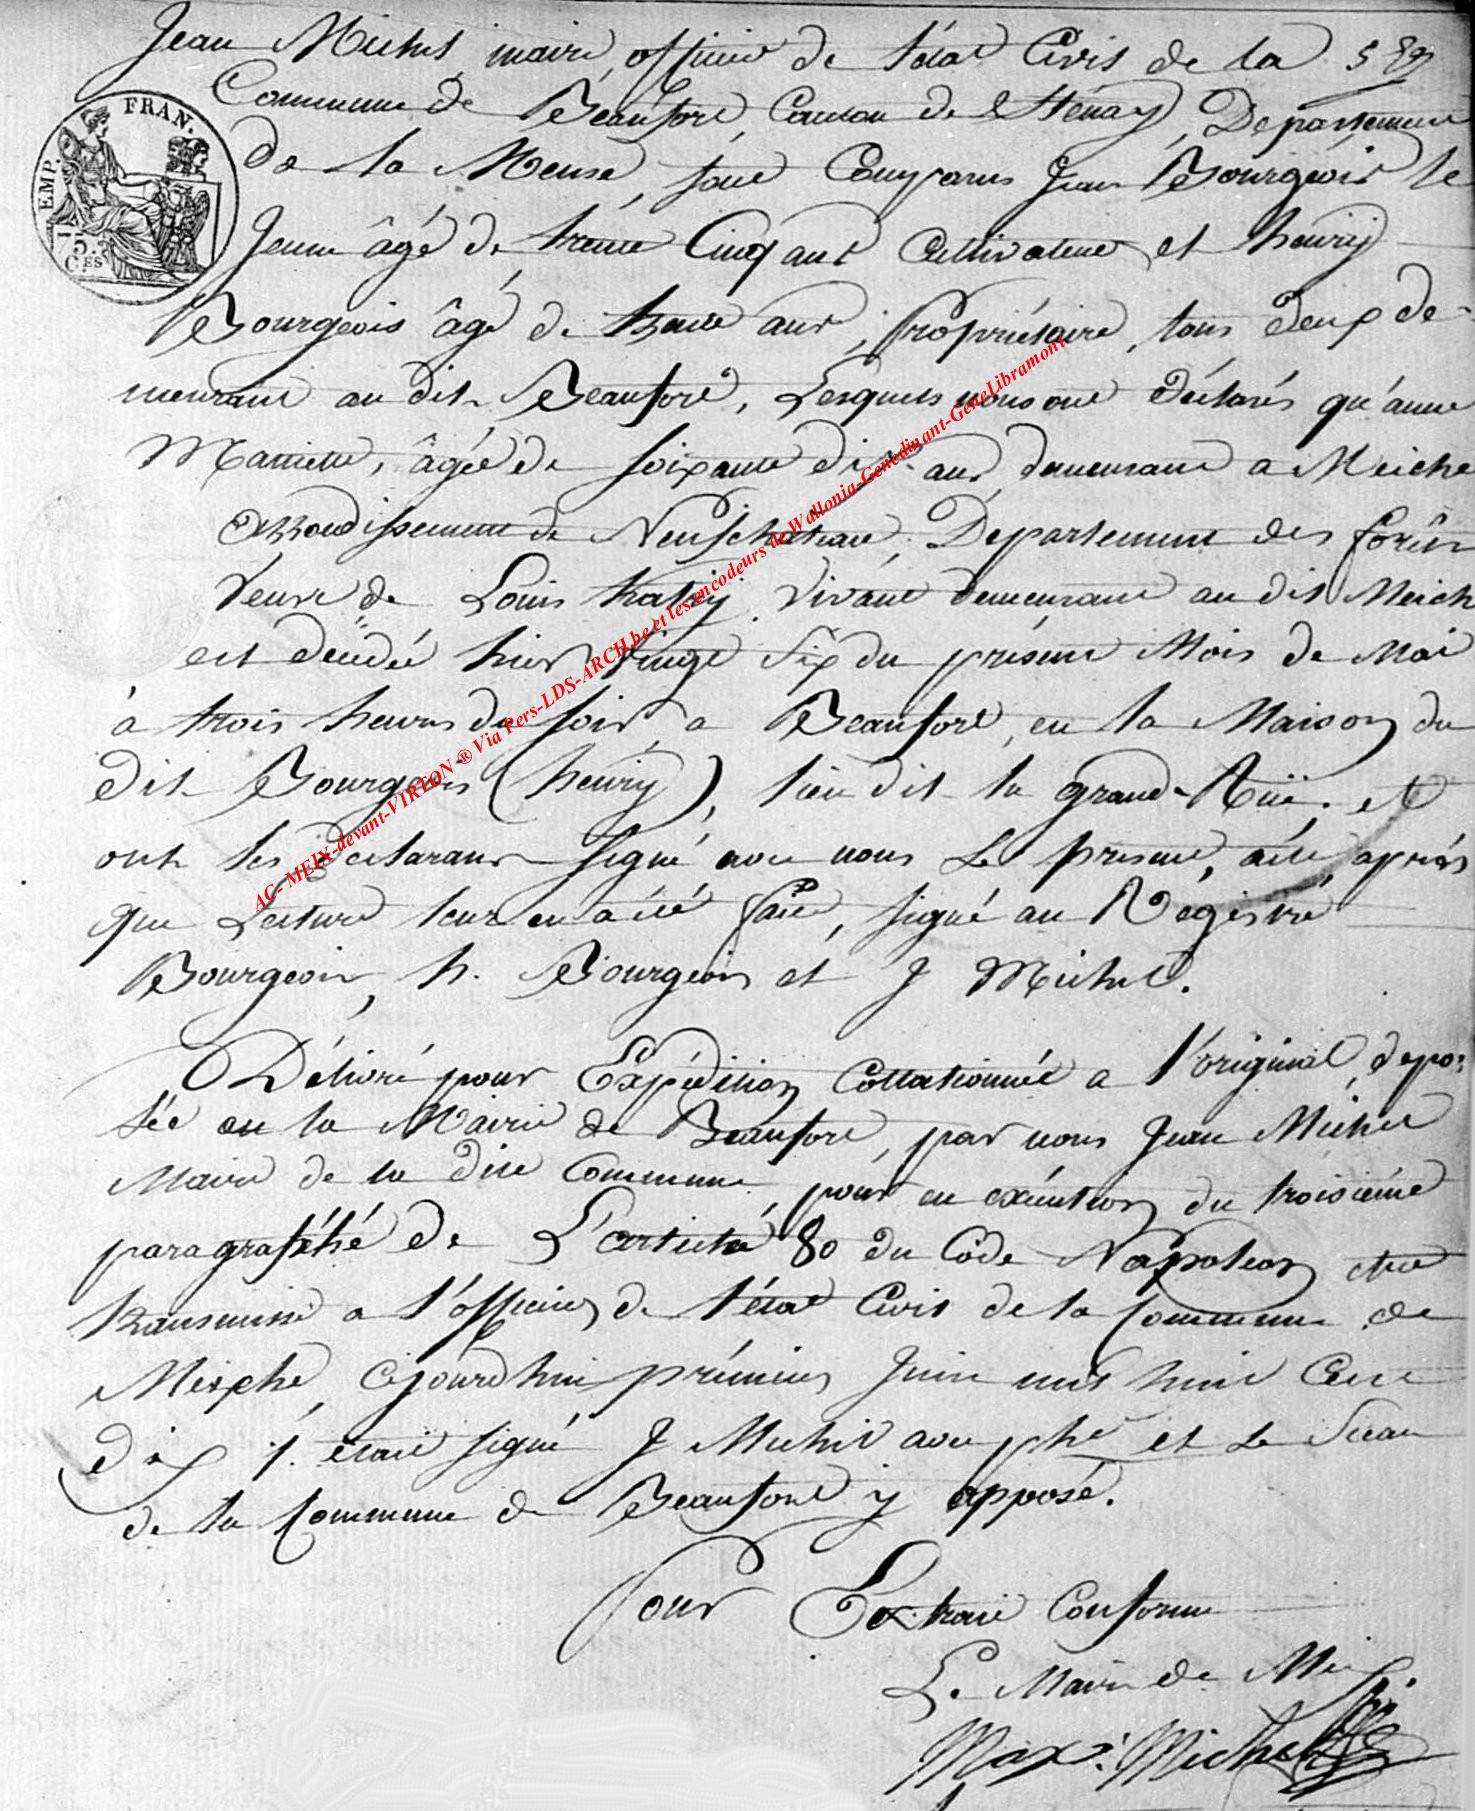 Jean Michel, maire, officier de l'état Civil de la
Commune de Beaufort, Canton de Stenay, Departement
FRAN.
EMP.
75.
C.ES
De la Meuse, sont Comparus Jean Bourgeois le
Jeune âgé de trente Cinq ans Cultivateur et henrÿ
Bourgeois âgé de trente ans, propriétaire, tous deux de-
meurant au dit Beaufort, Lesquels nous ont déclarés qu'anne
Mariette, âgée de soixante dix ans, demeurant a Meiche
arrondissement de Neufchateau, Département des forêts
Veuve de Louis vivant demeurant au dit Meich
est décédée hier vingt Six du présent Mois de Mai
à trois heures du soir, a Beaufort, en la Maison du
dit Bourgeois (henrÿ), lieu dit la grand-Rüe. et
ont les déclarants signé avec nous Le présent, acte, après
que Lecture leur en a été faite, signé au Régistre
Bourgeois, h. Bourgeois et J Michel.
Délivré pour Expédition Collationnée a l'original, dépo-
sée en la Mairie de Beaufort, par nous Jean Michel
Maire de la dite Commune, pour en exécution du troisième
paragraphe de L'article 80 du Code Napoleon etre
transmise a l'officier de l'état Civil de la Commune de
Meixhe, cejourd'hui premier Juin mil huit Cent
dix /. était signé J Michel avec phe et Le Sceau
de la Commune de Beaufort y apposé.
Pour Extrait Conforme
Le Maire de Meix.
Max: Michel
AC- MEIX-devant-VIRTON ® Via Pers-LDS-ARCH.be et les encodeurs de Wallonia-Genedinant-GeneLibramont